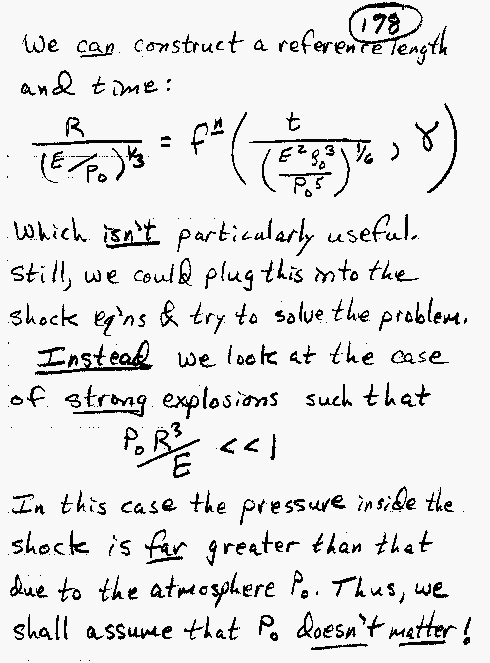 178
We can construct a reference length
and time:
R / (E/P₀)^⅓ = fⁿ ( t / (E² ρ₀³ / P₀⁵)^⅙ , γ )
Which isn't particularly useful.
Still, we could plug this into the
shock eq'ns & try to solve the problem.
Instead we look at the case
of strong explosions such that
P₀R³/E <<1
In this case the pressure inside the
shock is far greater than that
due to the atmosphere P₀. Thus, we
shall assume that P₀ doesn't matter!